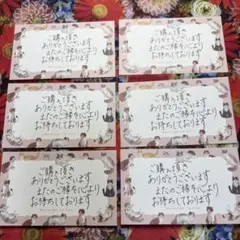 ご購入頂き
ありがとうございます
またのご縁を心より
お待ちしております
ご購入頂き
ありがとうございます
またのご縁を心より
お待ちしております
ご購入頂き
ありがとうございます
またのご縁を心より
お待ちしております
ご購入頂き
ありがとうございます
またのご縁を心より
お待ちしております
ご購入頂き
ありがとうございます
またのご縁を心より
お待ちしております
ご購入頂き
ありがとうございます
またのご縁を心より
お待ちしております